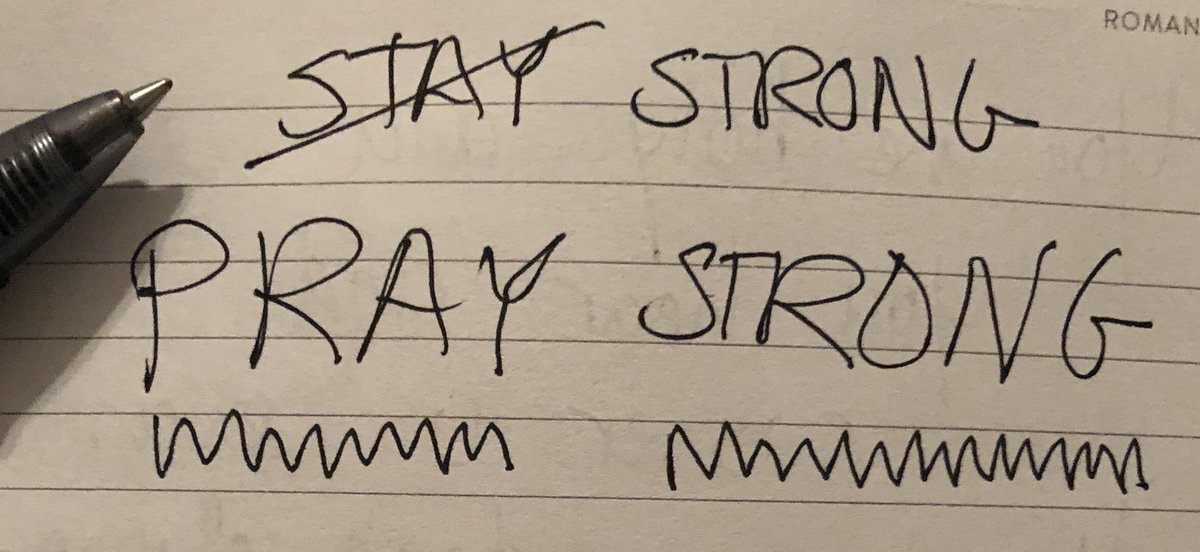 ROMAN
STAY STRONG
PRAY STRONG